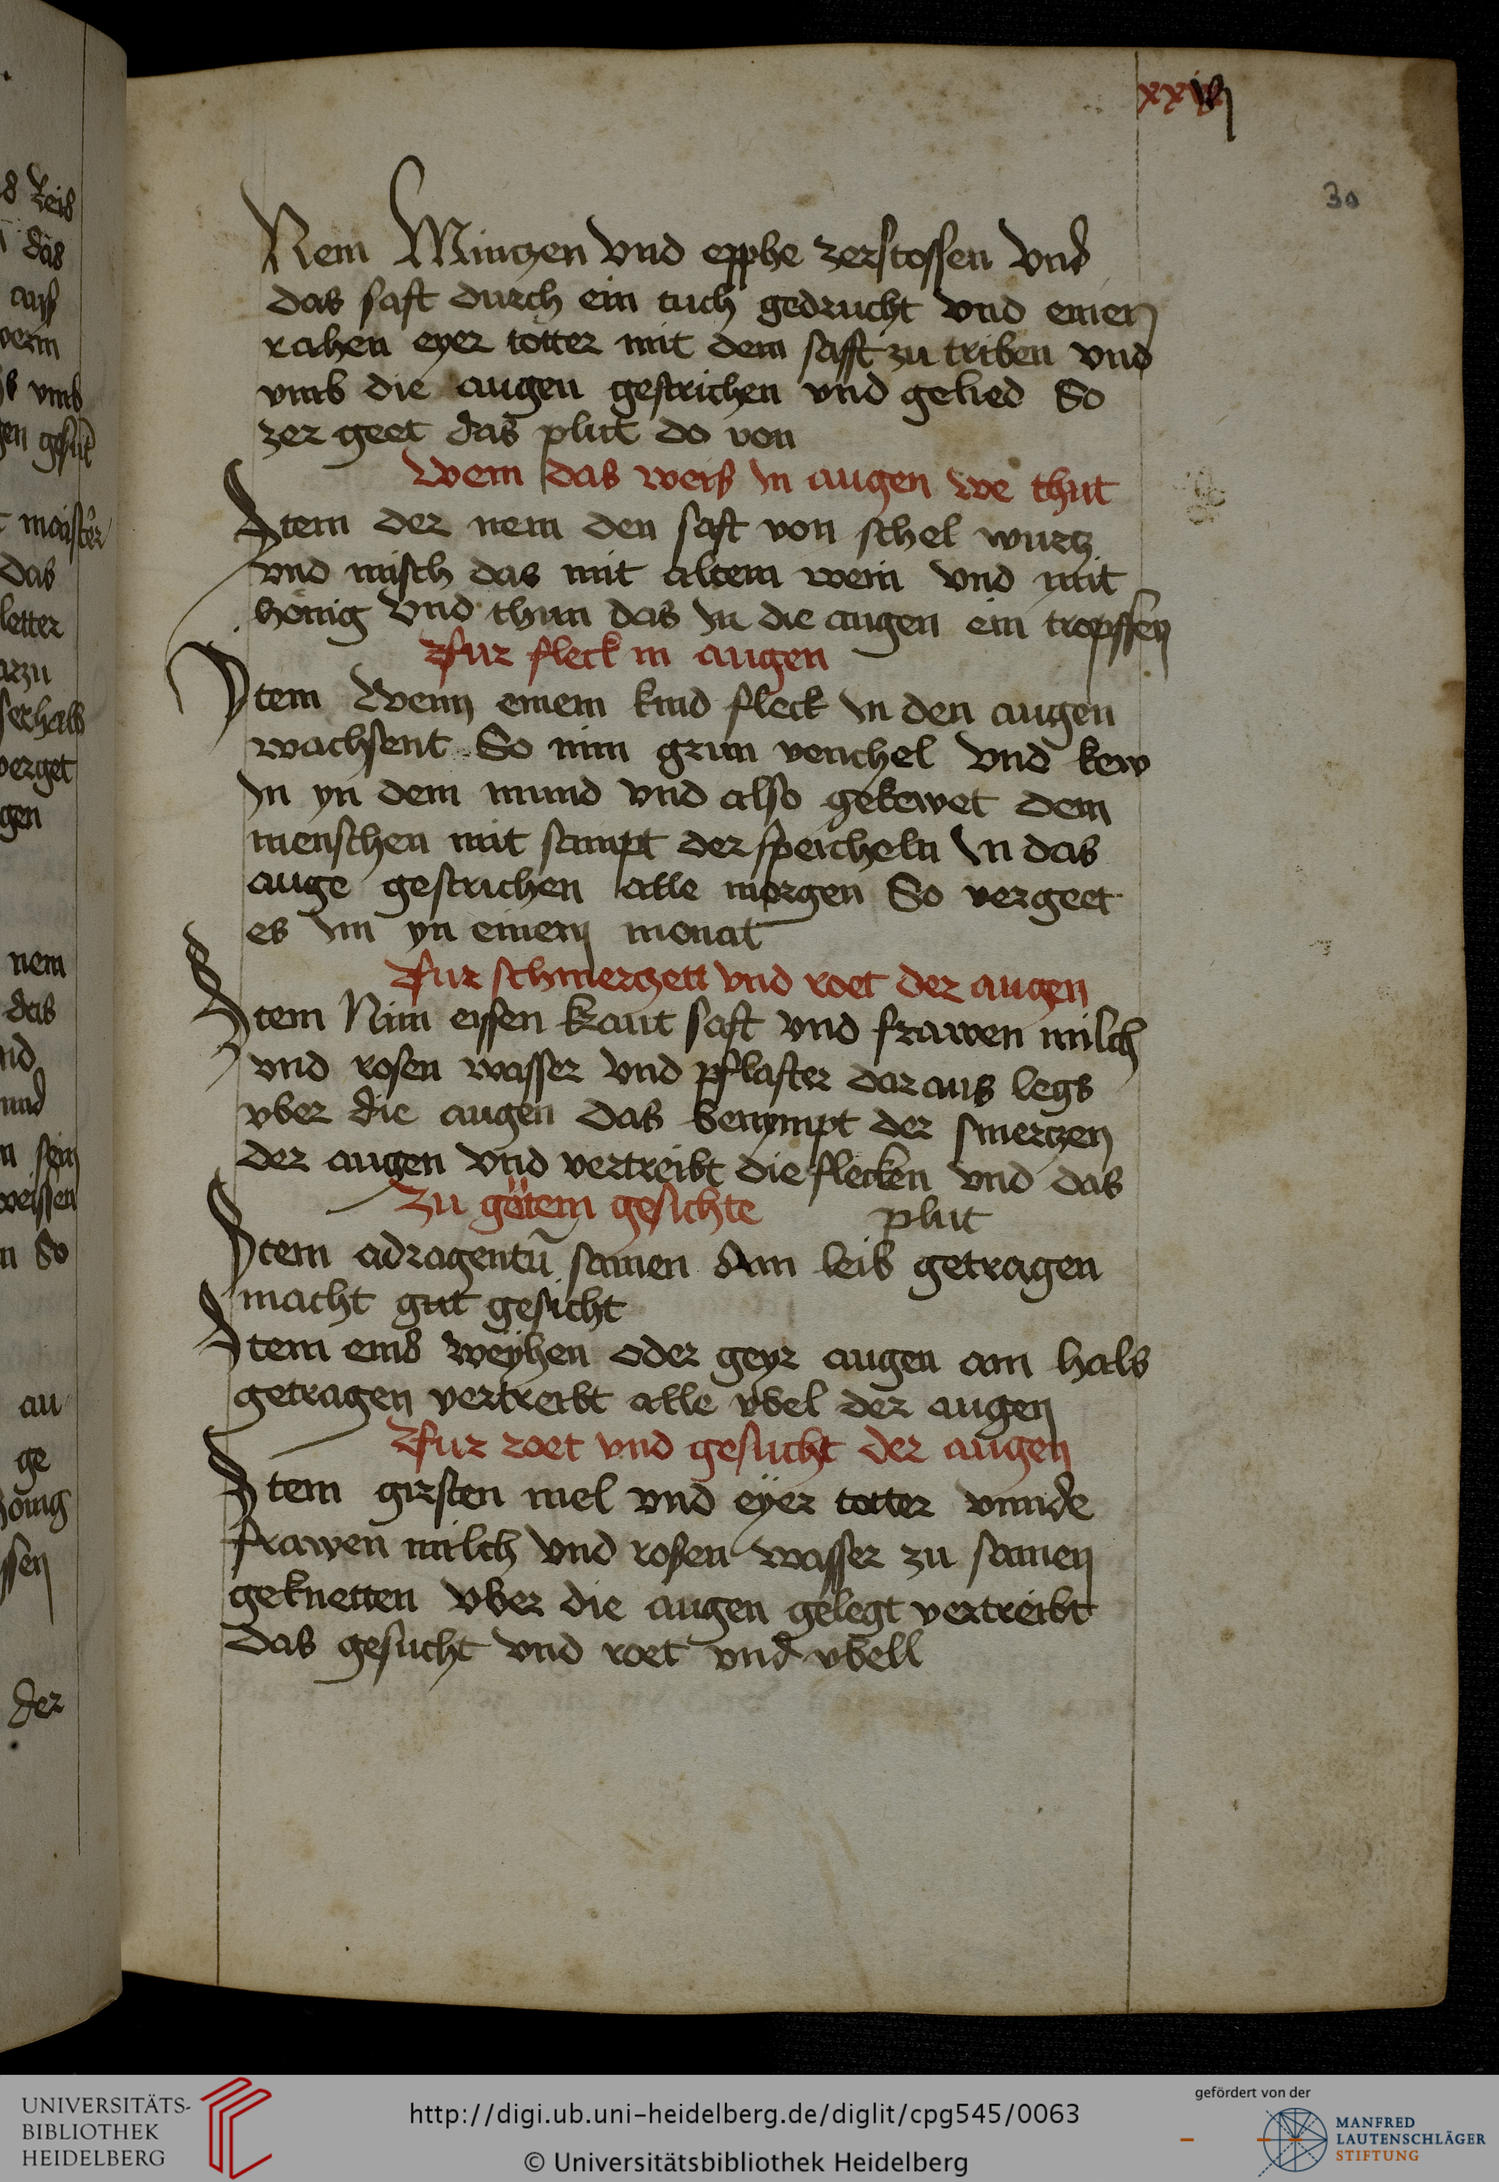 xxvij
30
Nem Mintzen vnd epphe zerstossen vnd
das saft durch ein tuch gedrucht vnd einen
rahen eyer totter mit dem safft zu triben vnd
vmb die augen gestrichen vnd gelied So
zer geet das plut do von
Wem das weiß In augen we thut
Item der nem den saft von schel wurtz
vnd misch das mit altem wein vnd mit
honig vnd thun das In die augen ein tropffen
Fur fleck in augen
Item Wenn einem kind fleck In den augen
wachsent So nim grun venchel vnd kew
In yn dem mund vnd also gekewet dem
menschen mit sampt der speicheln In das
auge gestrichen alle morgen So vergeet
es Im yn einem monat
Fur schmertzen vnd roet der augen
Item Nim eissen kraut saft vnd frawen milch
vnd rosen wasser vnd pflaster dar aus legs
vber die augen das benympt der smertzen
der augen vnd vertreibt die flecken vnd das
plut
Zu gutem gesichte
Item adragentū samen am leib getragen
macht gut gesicht
Item eins weyhen oder geyr augen am hals
getragen vertreibt alle vbel der augen
Fur roet vnd gesucht der augen
Item girsten mel vnd eyer totter vnnde
frawen milch vnd rosen wasser zu samen
geknetten vber die augen gelegt vertreibt
das gesucht vnd roet vnd vbell
UNIVERSITÄTS-
BIBLIOTHEK
HEIDELBERG
http://digi.ub.uni-heidelberg.de/diglit/cpg545/0063
© Universitätsbibliothek Heidelberg
gefördert von der
MANFRED
LAUTENSCHLÄGER
STIFTUNG